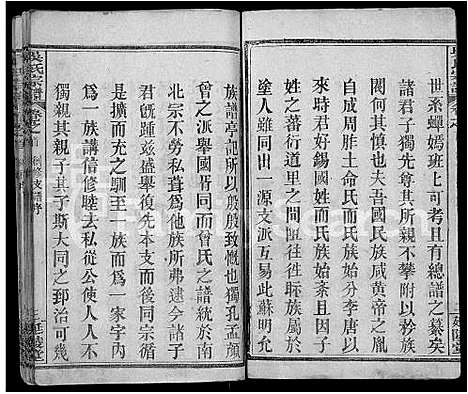 世系蟬嫣班上可考且有總譜之纂矣
諸君子獨先尊其所親不攀附以矜族
閥何其慎也夫吾國民族咸黃帝之胤
自成周胙土命氏而氏族始分李唐以
來時君好錫國姓而氏族始淆且因子
姓之蕃衍道里之間隔輾轉族屬於
塗人雖同出一源支派互易此蘇明允
族譜亭記所以殷殷致慨也獨孔孟顏
曾之派舉國胥同而曾氏之譜統於南
北宗不勞私聳爲他族所弗逮今諸子
君旣踵茲盛舉復先本支而後同宗循
是擴而充之馴至一族而爲一家宇內
爲一族講信修睦去私從公使人人不
獨親其親子其子斯大同之郅治可幾
吳氏宗譜
卷之首
創修支譜序
三
延陵堂